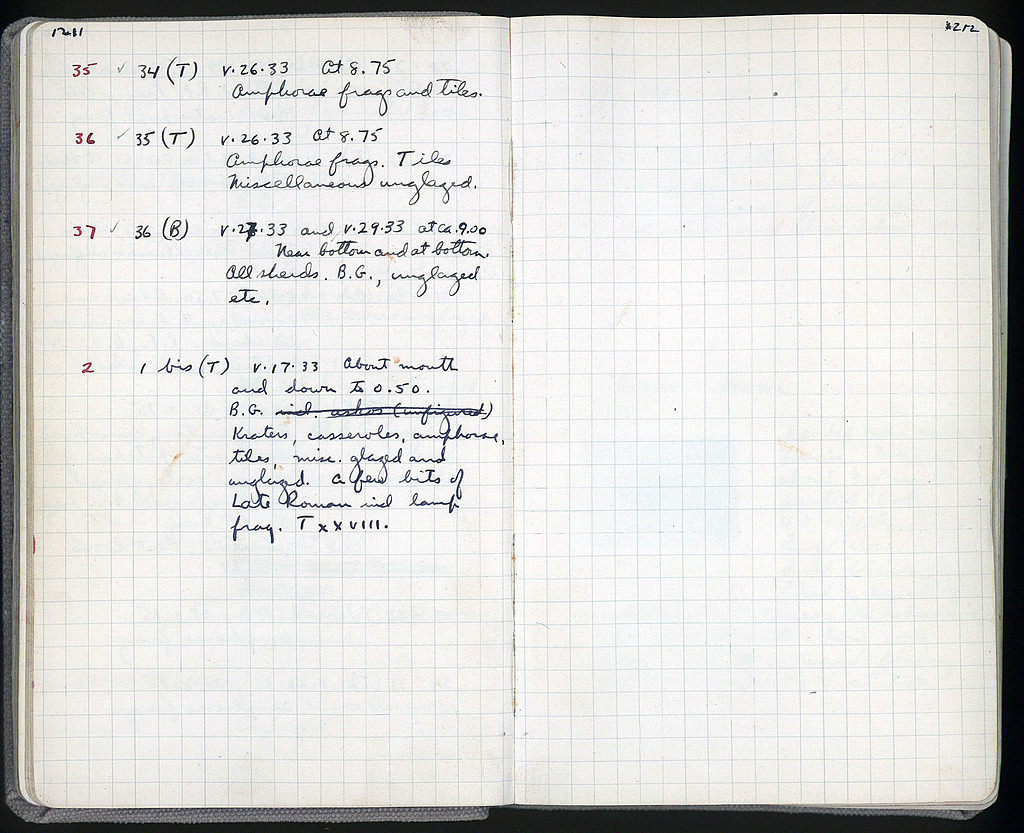 1211
35 ✓ 34 (T) V.26.33 At 8.75
Amphorae frags and tiles.
36 ✓ 35 (T) V.26.33 At 8.75
Amphorae frags. Tiles
Miscellaneous unglazed.
37 ✓ 36 (B) V.27.33 and V.29.33 at ca. 9.00
Near bottom and at bottom.
All sherds. B.G., unglazed
etc.
2 1 bis (T) V.17.33 About mouth
and down to 0.50.
B.G. incl. askos (unfigured)
Kraters, casseroles, amphorae,
tiles, misc. glazed and
unglazed. A few bits of
Late Roman incl lamp
frag. T XXVIII.
1212